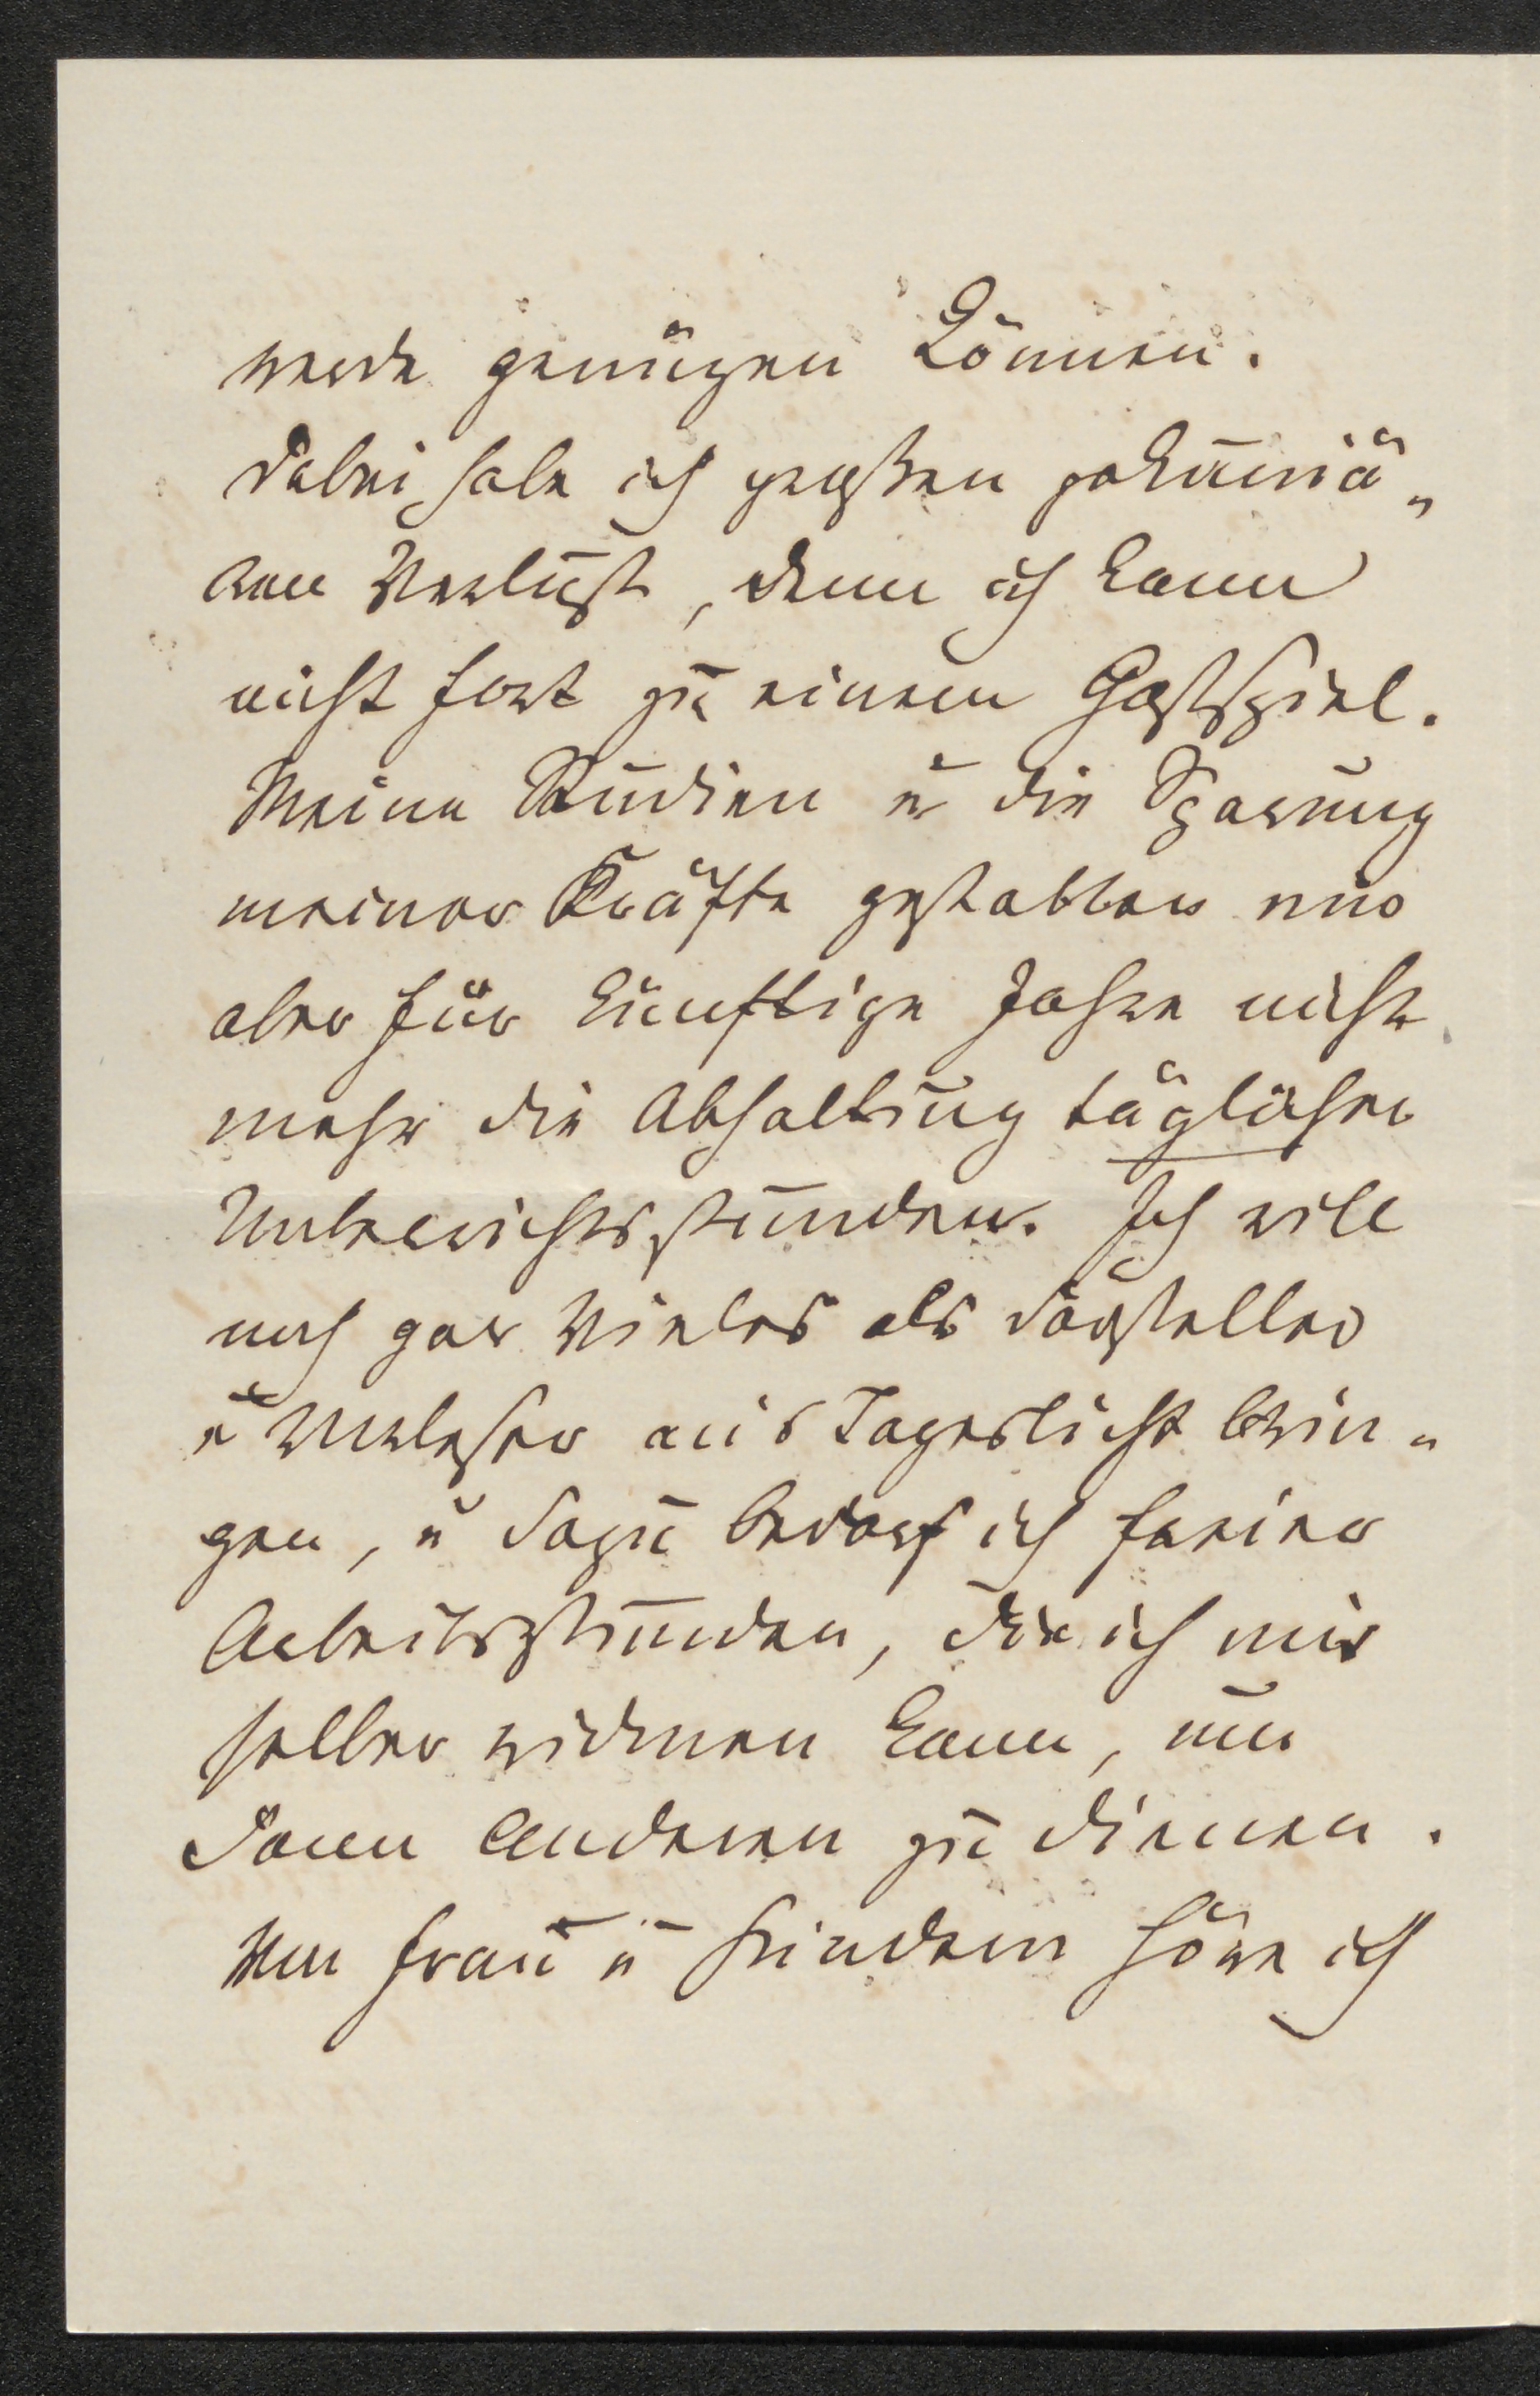 werde genügen können.
Dabei habe ich großen pekuniä-
ren Verlust, denn ich kann
nicht fort zu einem Gastspiel.
Meine Studien u die Sparung
meiner Kräfte gestatten mir
aber für künftige Jahre nicht
mehr die Abhaltung täglicher
Unterrichtsstunden. Ich will
noch gar Vieles als Darsteller
u Vorleser ans Tageslicht brin-
gen, u dazu bedarf ich freier
Arbeitsstunden, die ich mir
selber widmen kann, um
dann Anderen zu dienen.
Von Frau u Kindern höre ich